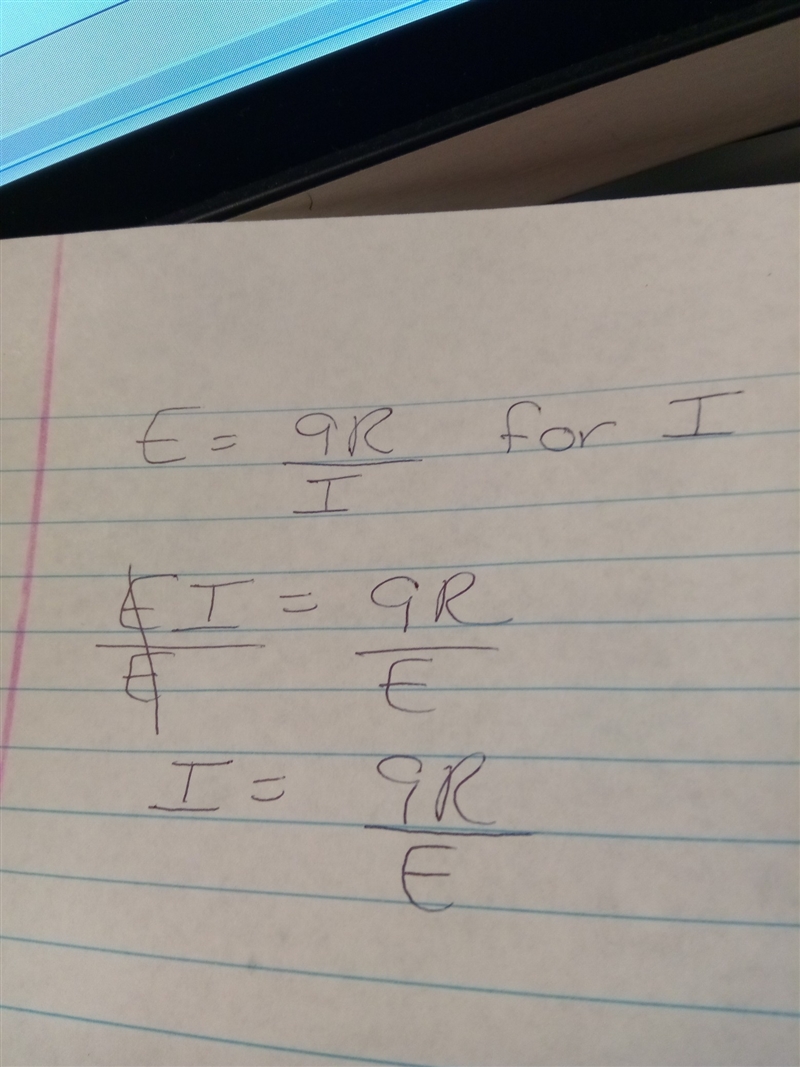 E = 9R/I for I
EI/E = 9R/E
I = 9R/E